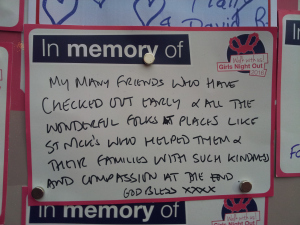 David R
In memory of
Walk with us!
Girls Night Out
2016
MY MANY FRIENDS WHO HAVE
CHECKED OUT EARLY & ALL THE
WONDERFUL FOLKS AT PLACES LIKE
ST NICK'S WHO HELPED THEM &
THEIR FAMILIES WITH SUCH KINDNESS
AND COMPASSION AT THE END
GOD BLESS XXXX
In memory of